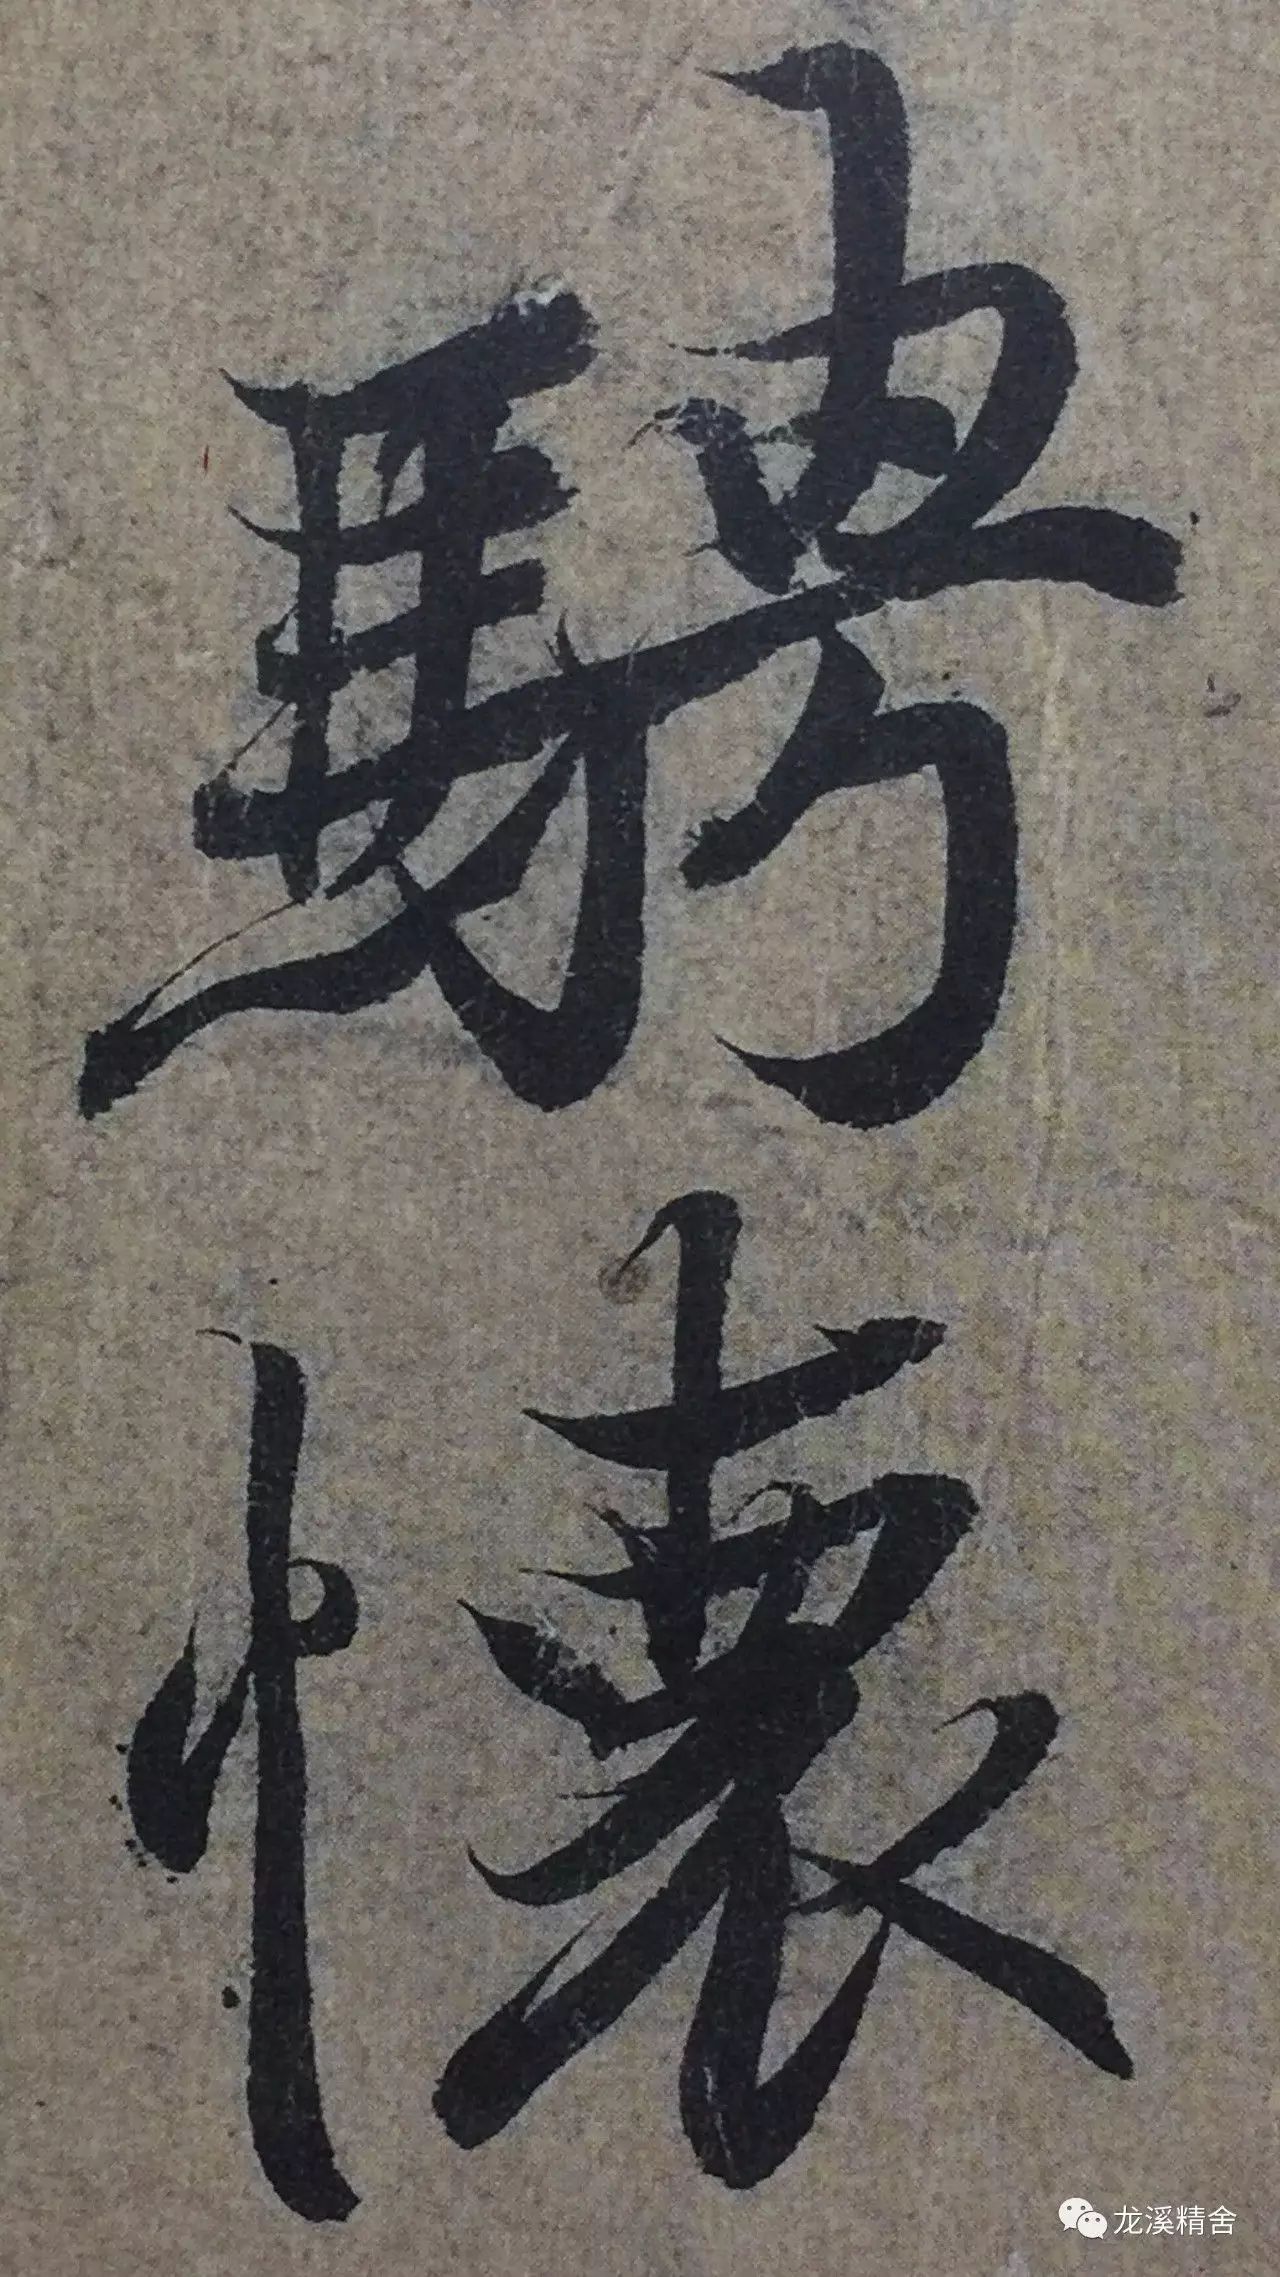 騁
懷
龙溪精舍